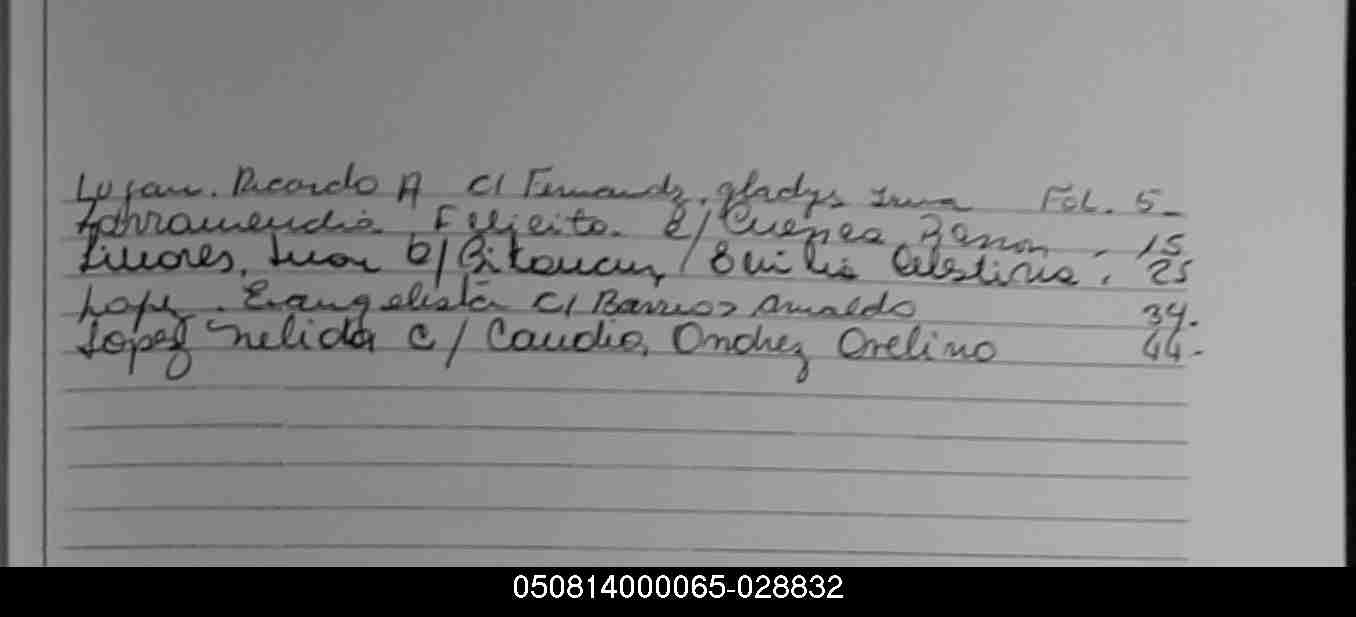 Lujan. Ricardo A c/ Fernandz. Gladys Irma Fol. 5-
Larramendia Felicita. c/ Cuenca Ramon. 15
Linares, Juan c/ Bitancur, Emilia Celestina. 25
Lopez. Evangelista c/ Barrios Arnaldo 34.
Lopez Nelida c/ Caudio, Andrez Avelino 44-
050814000065-028832